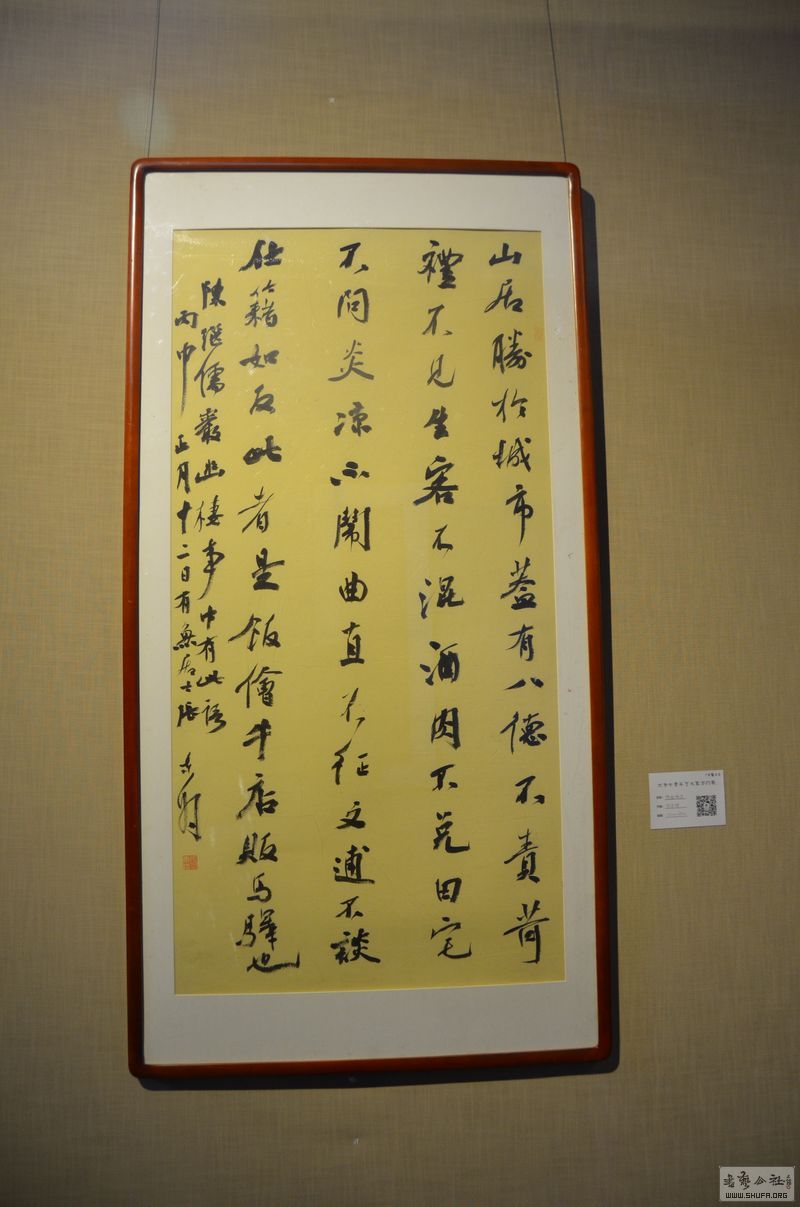 山居勝於城市蓋有八德不責苛
禮不見生客不混酒肉不競田宅
不問炎凉不鬧曲直不征文逋不談
仕籍如反此者是飯儈牛店販馬驛也
陳繼儒巖幽棲事中有此語
丙申正月十二日有無居士張
書法公社
WWW.SHUFA.ORG